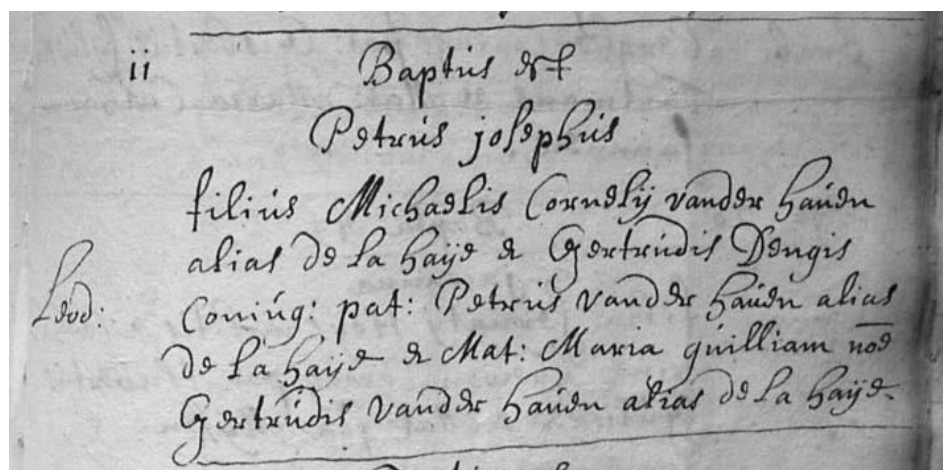 11
Baptus est
Petrus josephus
filius Michaelis Cornelij vander haüen
alias de la haije & Gertrudis Dengis
Leod:
Coniüg: pat: Petrus vander haüen alias
de la haije & Mat: Maria guilliam noe
Gertrudis vander haüen alias de la haije.